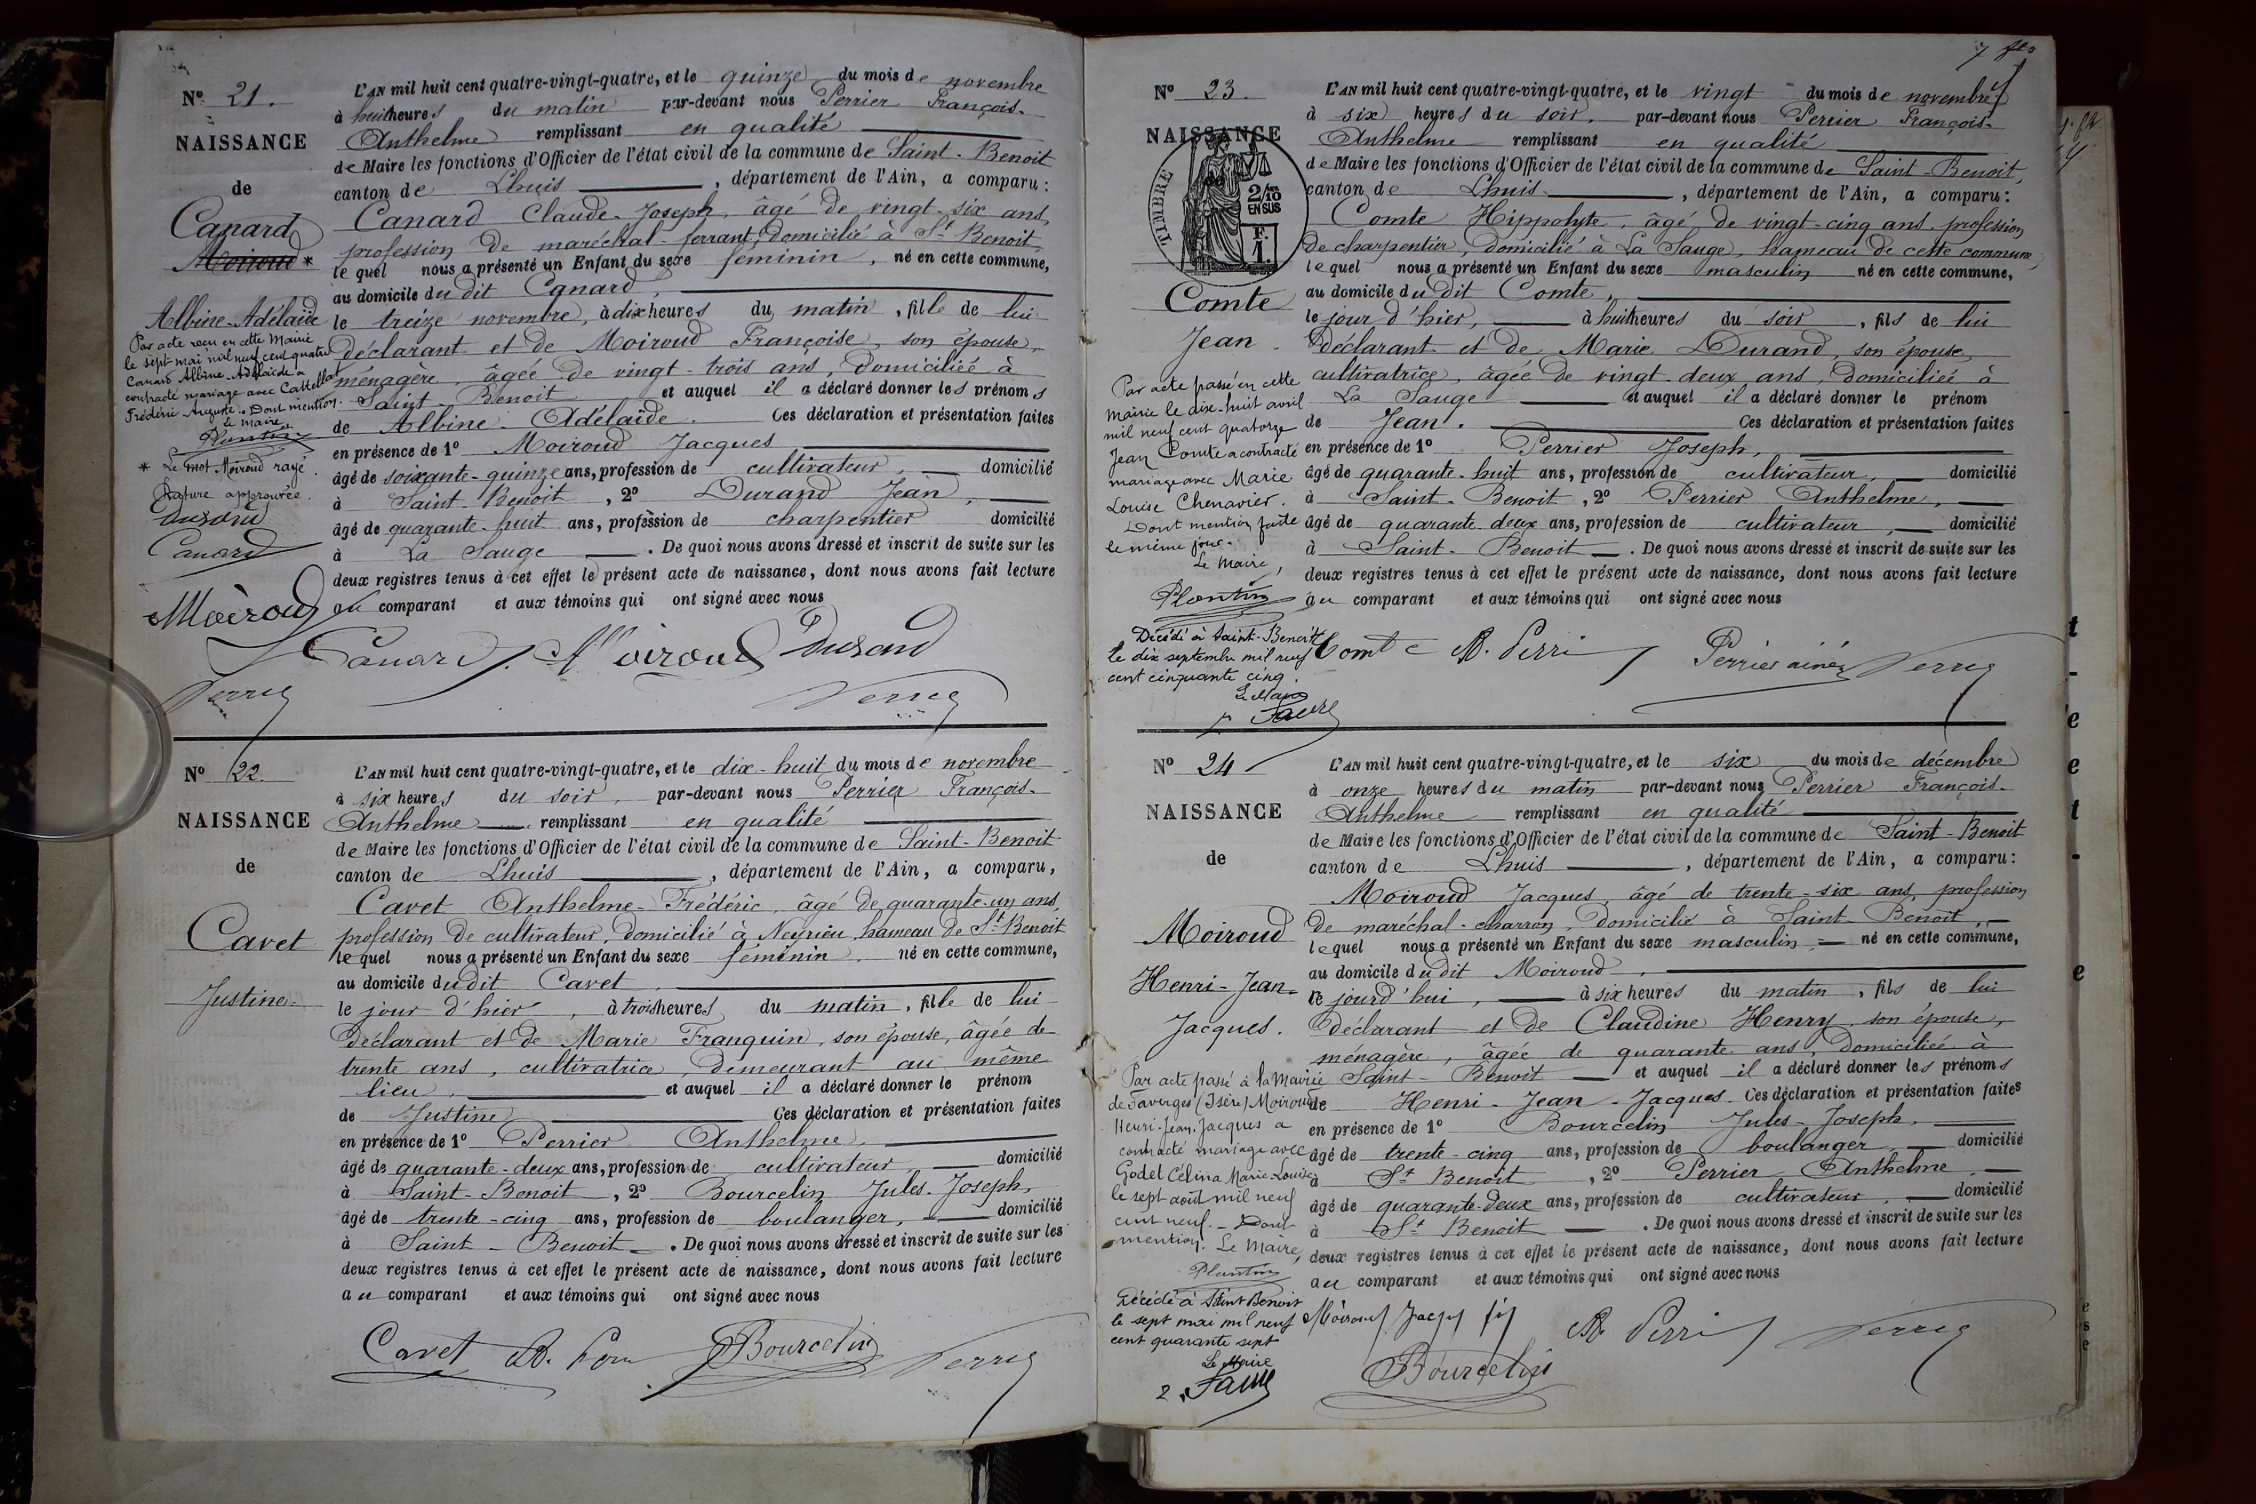 N° 21.
NAISSANCE
de
Canard
Moiroud *
Albine-Adélaïde
Par acte reçu en cette Mairie
le sept mai mil neuf cent quatre
Canard Albine-Adélaïde a
contracté mariage avec Castellan
Frédéric Auguste. Dont mention.
Le Maire
Plantin
* Le mot Moiroud rayé.
Rature approuvée.
Durand
Canard
Moiroud
L'AN mil huit cent quatre-vingt-quatre, et le quinze du mois de novembre
à huit heures du matin par-devant nous Perrier François-
Anthelme remplissant en qualité
de Maire les fonctions d'Officier de l'état civil de la commune de Saint-Benoit
canton de Lhuis, département de l'Ain, a comparu :
Canard Claude-Joseph, âgé de vingt-six ans,
profession de maréchal-ferrant, domicilié à St Benoit
lequel nous a présenté un Enfant du sexe féminin, né en cette commune,
au domicile dudit Canard,
le treize novembre, à dix heures du matin, fille de lui
déclarant et de Moiroud Françoise, son épouse,
ménagère, âgée de vingt-trois ans, domiciliée à
Saint-Benoit et auquel il a déclaré donner les prénoms
de Albine-Adélaïde. Ces déclaration et présentation faites
en présence de 1° Moiroud Jacques
âgé de soixante-quinze ans, profession de cultivateur, domicilié
à Saint-Benoit, 2° Durand Jean,
âgé de quarante-huit ans, profession de charpentier domicilié
à La Sauge. De quoi nous avons dressé et inscrit de suite sur les
deux registres tenus à cet effet le présent acte de naissance, dont nous avons fait lecture
au comparant et aux témoins qui ont signé avec nous
Canard. Moiroud Durand
N° 22.
NAISSANCE
de
Cavet
Justine
L'AN mil huit cent quatre-vingt-quatre, et le dix-huit du mois de novembre
à six heures du soir, par-devant nous Perrier François-
Anthelme remplissant en qualité
de Maire les fonctions d'Officier de l'état civil de la commune de Saint-Benoit
canton de Lhuis, département de l'Ain, a comparu,
Cavet Anthelme-Frédéric, âgé de quarante-un ans,
profession de cultivateur, domicilié à Neyrieu, hameau de St Benoit
lequel nous a présenté un Enfant du sexe féminin né en cette commune,
au domicile dudit Cavet,
le jour d'hier, à trois heures du matin, fille de lui
déclarant et de Marie Franquin, son épouse, âgée de
trente ans, cultivatrice, demeurant au même
lieu, et auquel il a déclaré donner le prénom
de Justine Ces déclaration et présentation faites
en présence de 1° Perrier Anthelme,
âgé de quarante-deux ans, profession de cultivateur, domicilié
à Saint-Benoit, 2° Bourcelin Jules-Joseph,
âgé de trente-cinq ans, profession de boulanger, domicilié
à Saint-Benoit. De quoi nous avons dressé et inscrit de suite sur les
deux registres tenus à cet effet le présent acte de naissance, dont nous avons fait lecture
au comparant et aux témoins qui ont signé avec nous
Cavet Bourcelin
N° 23.
NAISSANCE
TIMBRE
2/10
EN SUS
F.
1.
Comte
Jean.
Par acte passé en cette
Mairie le dix-huit avril
mil neuf cent quatorze
Jean Comte a contracté
mariage avec Marie
Louise Chenavier.
Dont mention faite
le même jour.
Le Maire,
Plantin
Décédé à Saint-Benoit
le dix septembre mil neuf
cent cinquante cinq.
Le Maire
Faure
L'AN mil huit cent quatre-vingt-quatre, et le vingt du mois de novembre
à six heures du soir, par-devant nous Perrier François-
Anthelme remplissant en qualité
de Maire les fonctions d'Officier de l'état civil de la commune de Saint-Benoit,
canton de Lhuis, département de l'Ain, a comparu :
Comte Hippolyte, âgé de vingt-cinq ans, profession
de charpentier, domicilié à La Sauge, hameau de cette commune,
lequel nous a présenté un Enfant du sexe masculin né en cette commune,
au domicile dudit Comte,
le jour d'hier, à huit heures du soir, fils de lui
déclarant et de Marie Durand, son épouse,
cultivatrice, âgée de vingt-deux ans, domiciliée à
La Sauge et auquel il a déclaré donner le prénom
de Jean. Ces déclaration et présentation faites
en présence de 1° Perrier Joseph,
âgé de quarante-huit ans, profession de cultivateur, domicilié
à Saint-Benoit, 2° Perrier Anthelme,
âgé de quarante-deux ans, profession de cultivateur, domicilié
à Saint-Benoit. De quoi nous avons dressé et inscrit de suite sur les
deux registres tenus à cet effet le présent acte de naissance, dont nous avons fait lecture
au comparant et aux témoins qui ont signé avec nous
Comte A. Perri Perrier ainé
N° 24
NAISSANCE
de
Moiroud
Henri-Jean-
Jacques.
Par acte passé à la Mairie
de Faverges (Isère) Moiroud
Henri-Jean-Jacques a
contracté mariage avec
Godet Célina Marie-Louise
le sept août mil neuf
cent neuf. – Dont
mention. Le Maire,
Plantin
Décédé à Saint Benoit
le sept mai mil neuf
cent quarante sept
Le Maire
Faure
L'AN mil huit cent quatre-vingt-quatre, et le six du mois de décembre
à onze heures du matin par-devant nous Perrier François-
Anthelme remplissant en qualité
de Maire les fonctions d'Officier de l'état civil de la commune de Saint-Benoit
canton de Lhuis, département de l'Ain, a comparu :
Moiroud Jacques, âgé de trente-six ans, profession
de maréchal-charron, domicilié à Saint-Benoit,
lequel nous a présenté un Enfant du sexe masculin, né en cette commune,
au domicile dudit Moiroud,
le jourd'hui, à six heures du matin, fils de lui
déclarant et de Claudine Henry, son épouse,
ménagère, âgée de quarante ans, domiciliée à
Saint-Benoit et auquel il a déclaré donner les prénoms
de Henri-Jean-Jacques Ces déclaration et présentation faites
en présence de 1° Bourcelin Jules-Joseph,
âgé de trente-cinq ans, profession de boulanger, domicilié
à St Benoit, 2° Perrier Anthelme,
âgé de quarante-deux ans, profession de cultivateur, domicilié
à St Benoit. De quoi nous avons dressé et inscrit de suite sur les
deux registres tenus à cet effet le présent acte de naissance, dont nous avons fait lecture
au comparant et aux témoins qui ont signé avec nous
A. Perri
Bourcelin